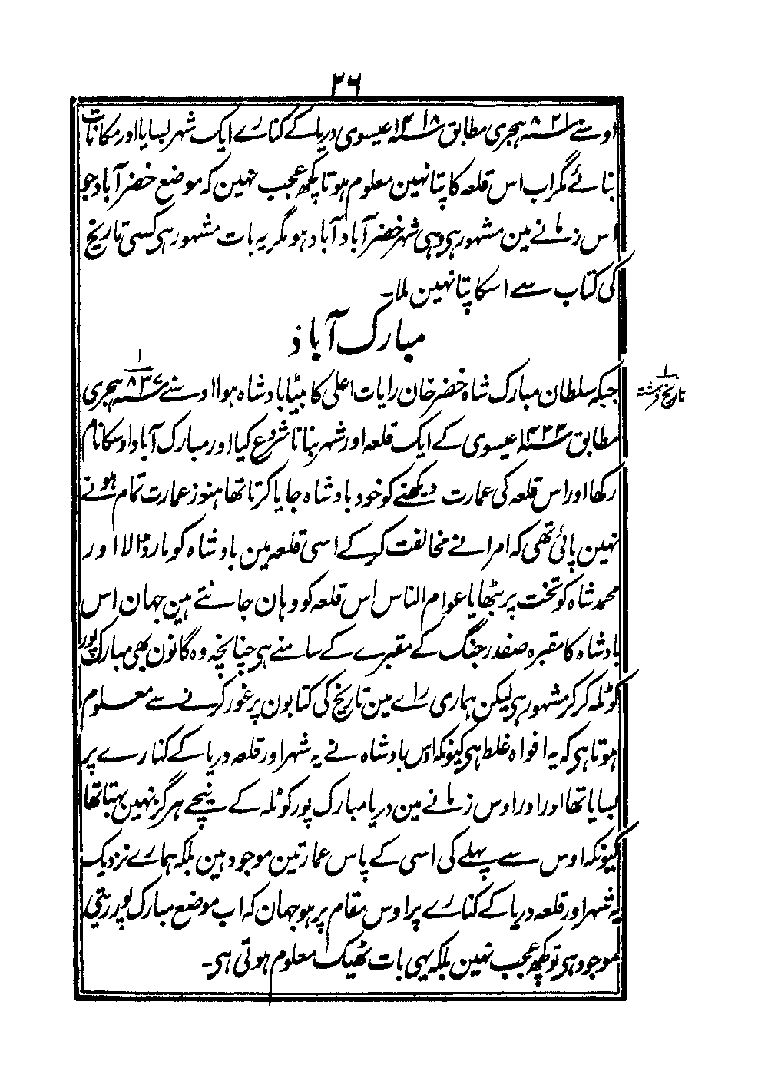 ۲۶
اوسنے ۸۲۱ ہجری مطابق ۱۴۱۸ عیسوی دریا کے کنارے ایک شہر بسایا اور مکانات
بنائے مگر اب اس قلعہ کا پتا نہین معلوم ہوتا کچھ عجب نہین کہ موضع خضر آباد جو
اس زمانے مین مشہور ہی وہی شہر خضر آباد آباد ہو مگر یہ بات مشہور ہی کسی تاریخ
کی کتاب سے اسکا پتا نہین ملا۔
مبارک آباد
۱
جبکہ سلطان مبارک شاہ خضر خان رایات اعلی کا بیٹا بادشاہ ہوا اوسنے ۸۳۶ ہجری
۱
تاریخ فرشتہ
مطابق ۱۴۳۲ عیسوی کے ایک قلعہ اور شہر بنانا شروع کیا اور مبارک آباد اوسکا نام
رکھا اور اس قلعہ کی عمارت دیکھنے کو خود بادشاہ جایا کرتا تھا ہنوز عمارت تمام ہونے
نہین پائی تھی کہ امرا نے مخالفت کرکے اسی قلعہ مین بادشاہ کو مار ڈالا اور
محمد شاہ کو تخت پر بٹھایا عوام الناس اس قلعہ کو وہان جانتے ہین جہان اس
بادشاہ کا مقبرہ صفدر جنگ کے مقبرے کے سامنے ہی چنانچہ وہ گانون بھی مبارک پور
کوٹلہ کر کر مشہور ہی لیکن ہماری راے مین تاریخ کی کتابون پر غور کرنے سے معلوم
ہوتا ہی کہ یہ افواہ غلط ہی کیونکہ اس بادشاہ نے یہ شہر اور قلعہ دریا کے کنارے پر
بسایا تھا اور اور اوس زمانے مین دریا مبارک پور کوٹلہ کے نیچے ہرگز نہین بہتا تھا
کیونکہ اوس سے پہلے کی اسی کے پاس عمارتین موجود ہین بلکہ ہمارے نزدیک
یہ شہر اور قلعہ دریا کے کنارے پر اوس مقام پر ہو جہان کہ اب موضع مبارک پور ریتی
موجود ہی تو کچھ عجب نہین بلکہ یہی بات ٹھیک معلوم ہوتی ہی۔